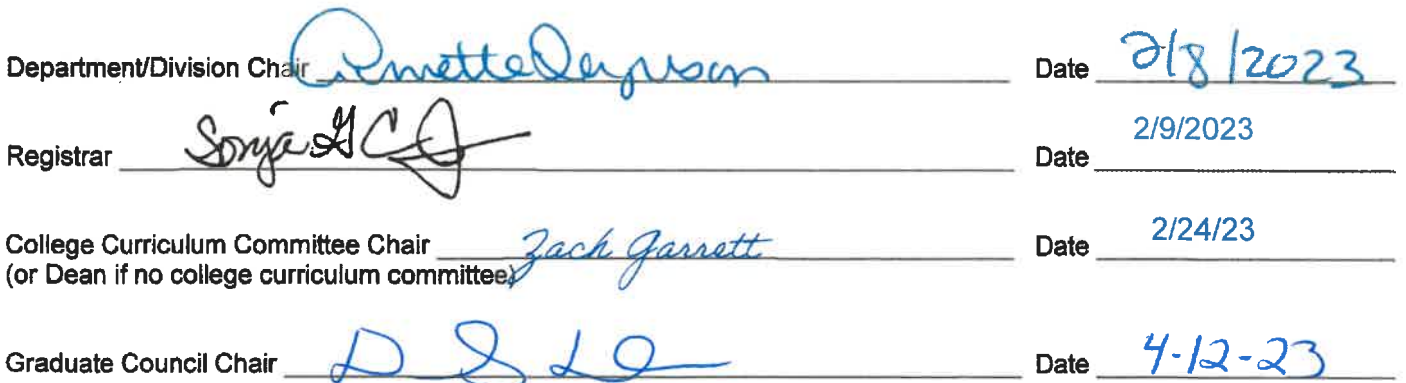 Department/Division Chair Date 2/8/2023
Registrar Sonja G Date 2/9/2023
College Curriculum Committee Chair Zach Garrett Date 2/24/23
(or Dean if no college curriculum committee)
Graduate Council Chair Date 4-12-23